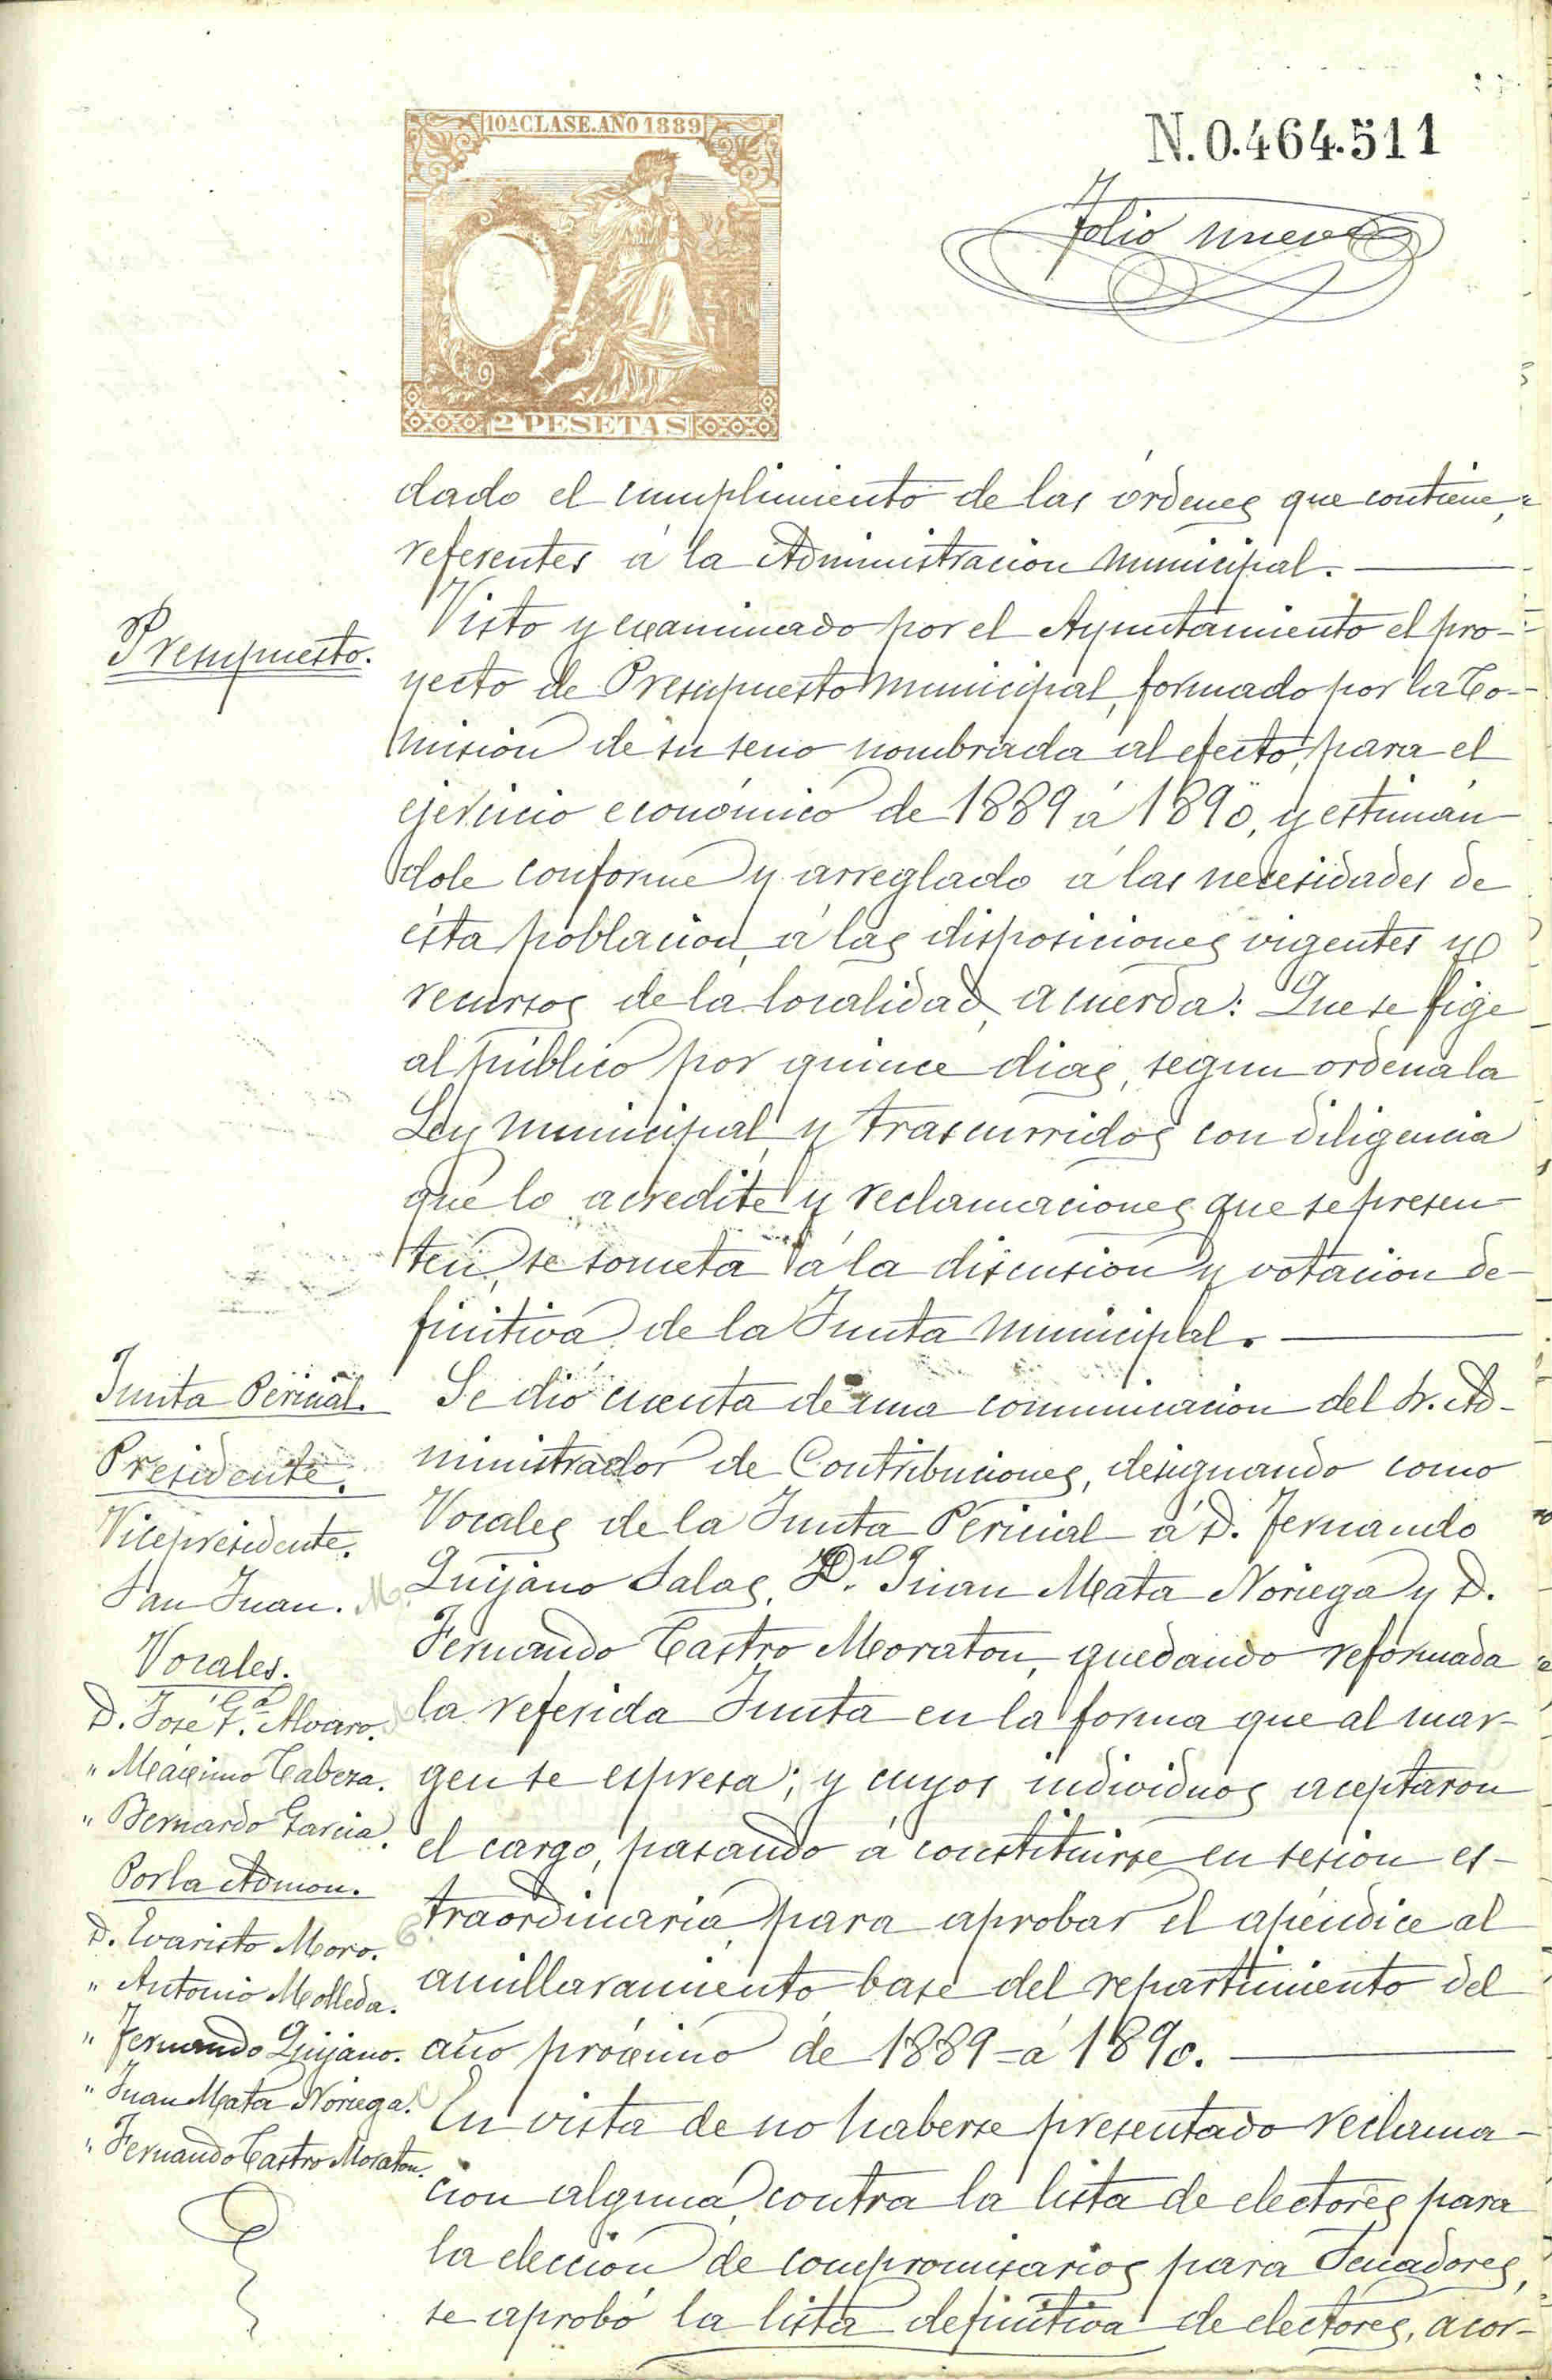 10ª CLASE. AÑO 1889
N. 0.464.511
Folio nueve
2 PESETAS
dado el cumplimiento de las órdenes que contiene,
referentes á la Administracion municipal.
Presupuesto.
Visto y examinado por el Ayuntamiento el pro-
yecto de Presupuesto municipal, formado por la Co-
mision de su seno nombrada al efecto, para el
ejercicio económico de 1889 á 1890, y estiman
dole conforme y arreglado á las necesidades de
ésta poblacion, á las disposiciones vigentes y
recursos de la localidad, acuerda: Que se fige
al público por quince dias, segun ordena la
Ley municipal, y trascurridos con diligencia
que lo acredite y reclamaciones que se presen
ten, se someta á la discusion y votacion de-
finitiva de la Junta municipal.
Junta Pericial.
Presidente.
Vicepresidente.
San Juan.
Vocales.
D. José G.ª Alvaro.
" Máximo Cabeza.
" Bernardo Garcia.
Por la Admon.
D. Evaristo Moro.
" Antonio Molleda.
" Fernando Quijano.
" Juan Mata Noriega.
" Fernando Castro Moraton.
Se dió cuenta de una comunicacion del Sr. Ad-
ministrador de Contribuciones, designando como
Vocales de la Junta Pericial á D. Fernando
Quijano Salas, D. Juan Mata Noriega y D.
Fernando Castro Moraton, quedando reformada
la referida Junta en la forma que al mar-
gen se espresa; y cuyos individuos aceptaron
el cargo, pasando á constituirse en sesion es-
traordinaria, para aprobar el apéndice al
amillaramiento base del repartimiento del
año próximo de 1889=á 1890.
En vista de no haberse presentado reclama-
cion alguna, contra la lista de electores para
la eleccion de compromisarios para Senadores,
se aprobó la lista definitiva de electores, acor-